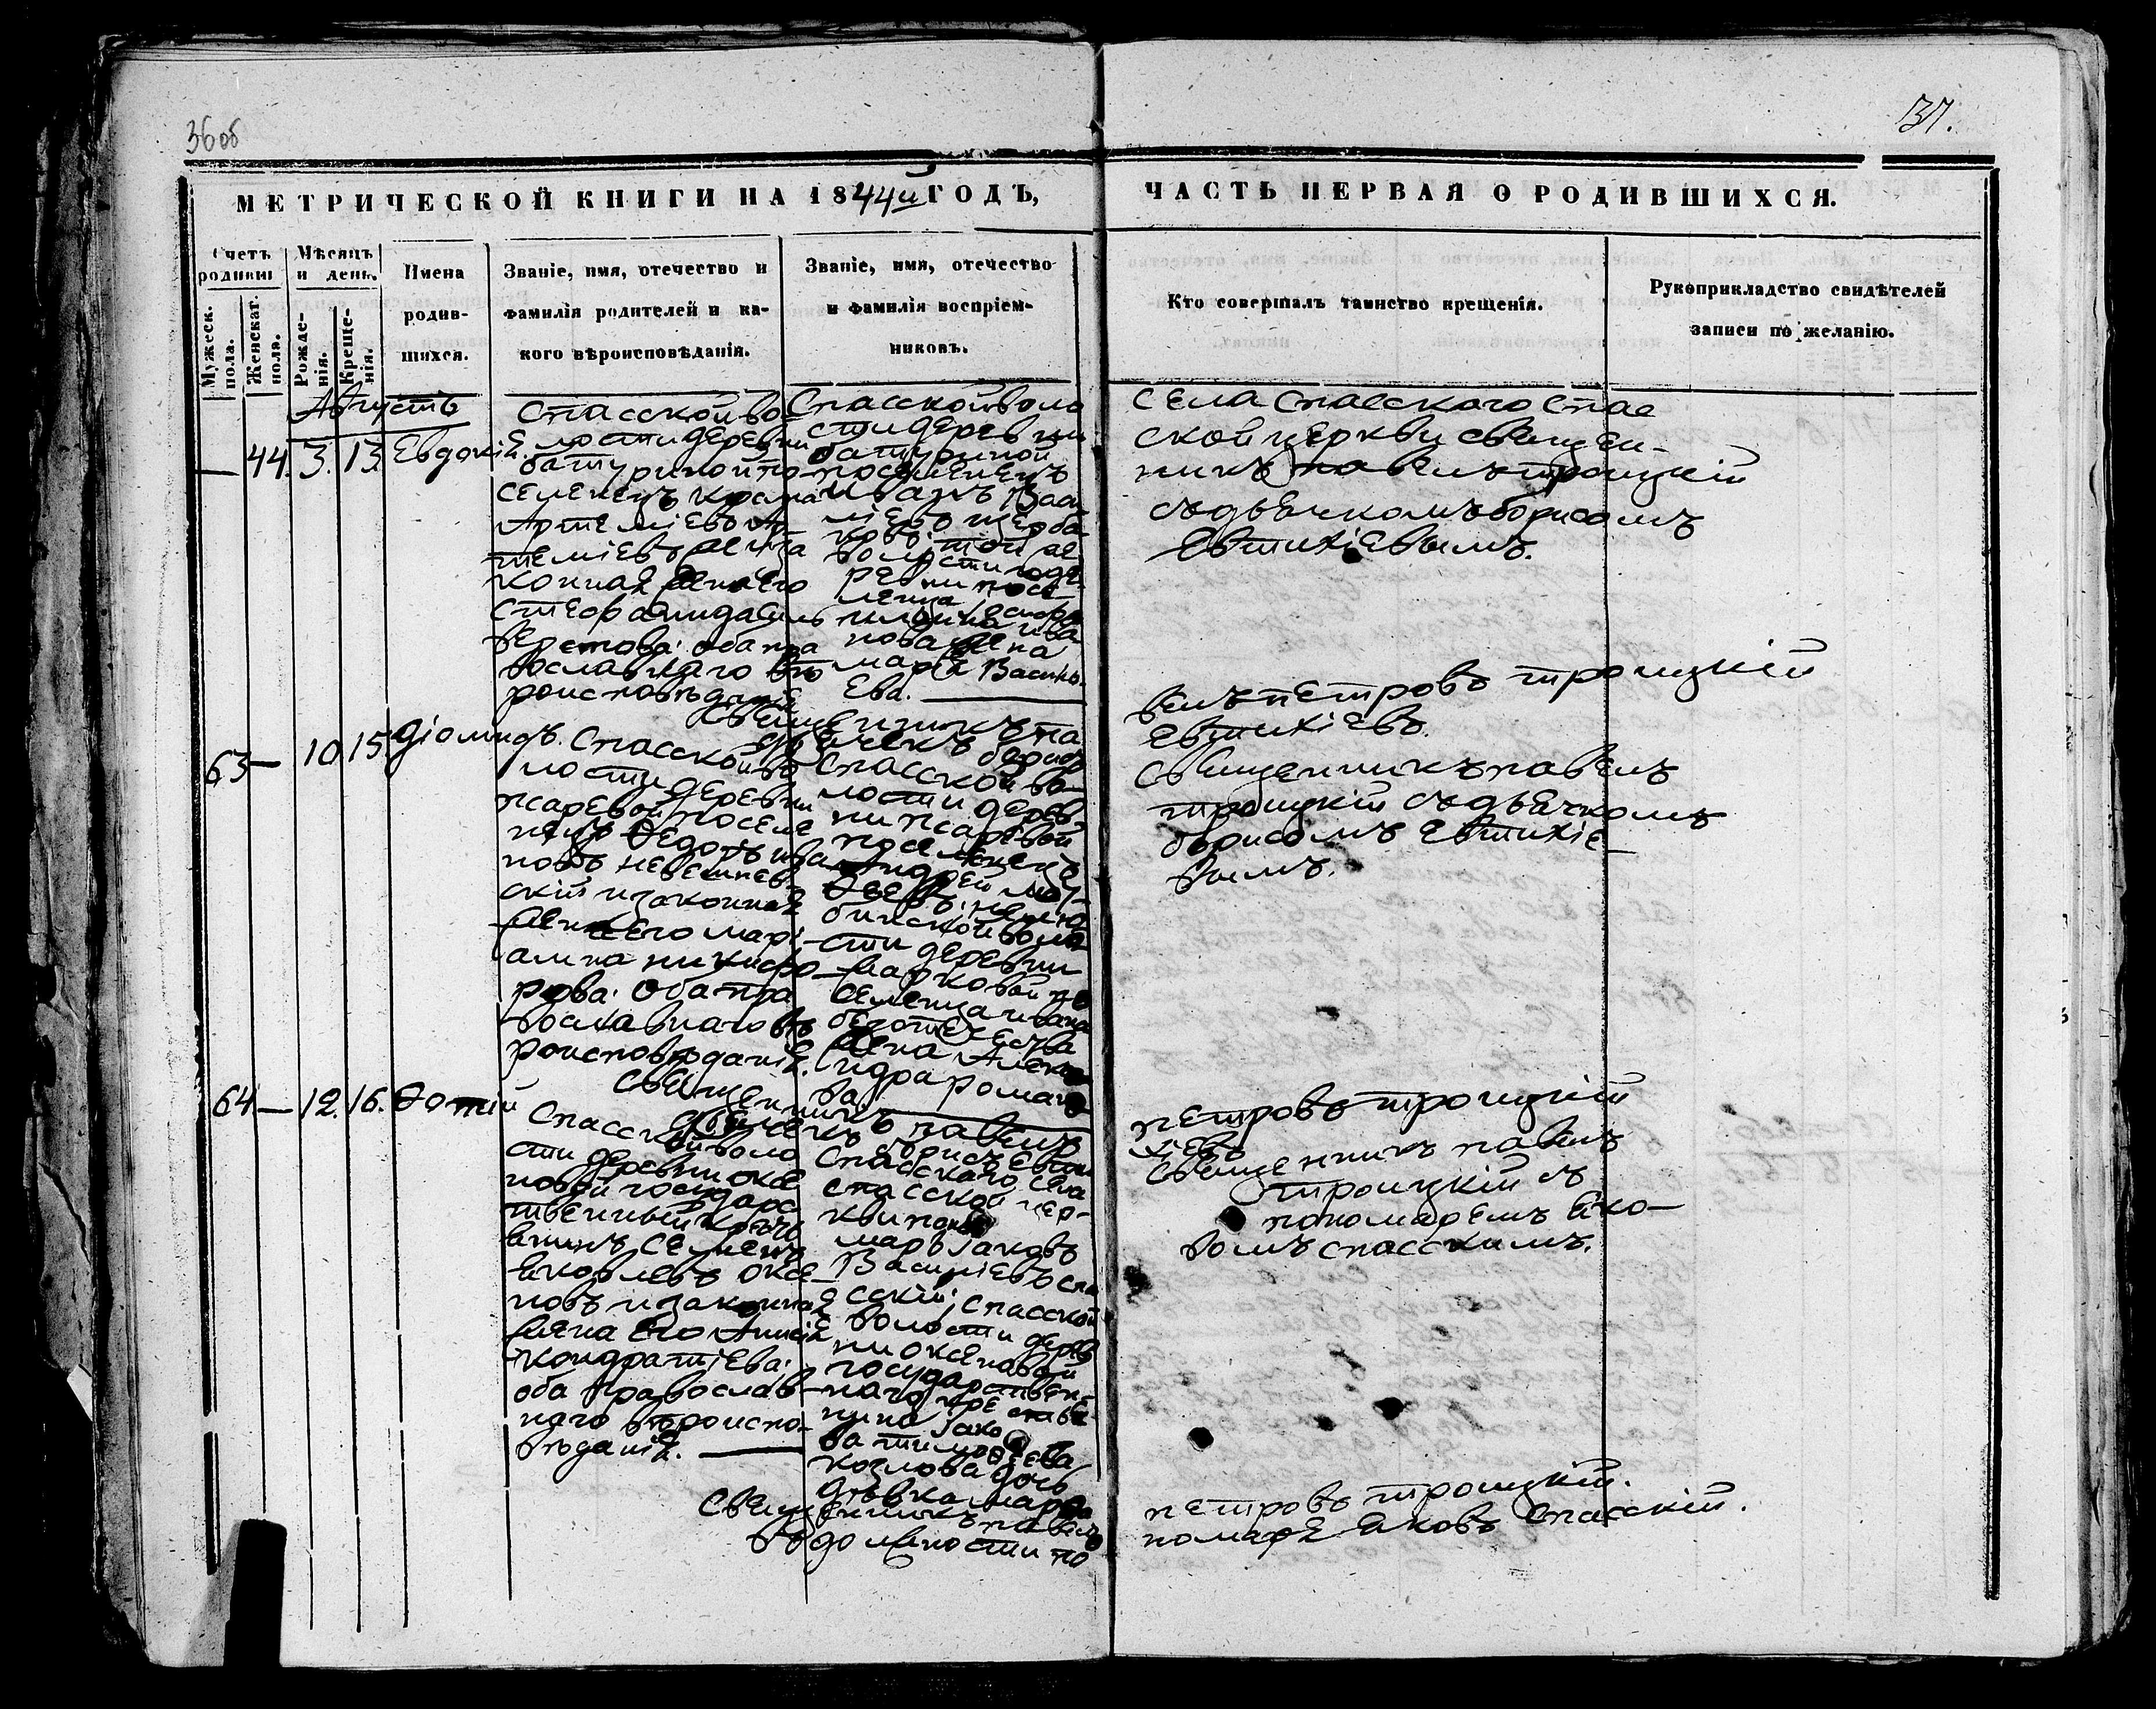 36 об
37.
МЕТРИЧЕСКОЙ КНИГИ НА 1844й ГОДЪ,
ЧАСТЬ ПЕРВАЯ О РОДИВШИХСЯ.
Счетъ родивш
Мужеск. пола.
Женскаг. пола.
Мѣсяцъ и день.
Рожде-
нія.
Креще-
нія.
Имена
родив-
шихся.
Званіе, имя, отечество и
фамилія родителей и ка-
кого вѣроисповѣданія.
Званіе, имя, отечество
и фамилія воспріем-
никовъ.
Кто совершалъ таинство крещенія.
Рукоприкладство свидѣтелей
записи по желанію.
Августъ
— 44. 3. 13. Евдокій.
Спасской во-
лости деревни
батуриной по-
селенецъ
Артеміевъ Ар-
теміевъ и за
конная жена его
веретова: оба пра
вославнаго вѣ
роисповѣданія
Спасской воло
сти деревни
батуриной
поселенецъ
Иванъ Васи
ліевъ щерба
ковъ: той же
волости и де
ревни посе
ленца
нова жена
марѳа Василь-
ева.
села Спасского Спас
ской церкви священ-
никъ павелъ троицкій
съ дьячкомъ борисомъ
Евтихіевымъ.
Священникъ па
велъ петровъ троицкій
дьячекъ борисъ
Евтихіевъ.
63 — 10. 15. Діомидъ.
Спасской во
лости деревни
псаревой поселе
нецъ Ѳедотъ ива
новъ невешнев-
скій и законная
жена его марі-
амна никифо-
рова: оба пра
вославнаго вѣ
роисповѣданія.
Спасской во-
лости дерев-
ни псаревой
поселенецъ
Андрей мат-
бинской воло
сти деревни
марковой по
селенца ивана
безотечества
жена Алекса
ндра романо
ва.
Священникъ павелъ
троицкій съ дьячкомъ
борисомъ Евтихіе-
вымъ.
Священникъ павелъ
петровъ троицкій
дьячекъ борисъ Евти
хіевъ
64 — 12. 16. Ѳотій
Спасской воло
сти деревни оксе
новой государс
твенный кресть
янинъ Семенъ
яковлевъ оксе-
новъ и законная
жена его Анисія
кондратіева:
оба православ-
наго вѣроиспо-
вѣданія.
Спасскаго села
спасской цер-
кви поно
марь Іаковъ
Василіевъ спа
сскій; спасской
волости дерев
ни оксеновой
государствен-
наго крестья-
нина Іако
ва тимоѳеева
козлова дочь
дѣвка марѳа
Священникъ павелъ
троицкій съ
пономаремъ Яко-
вомъ спасскимъ.
Священникъ павелъ
петровъ троицкій.
въ должности по
номаря Яковъ Спасскій.